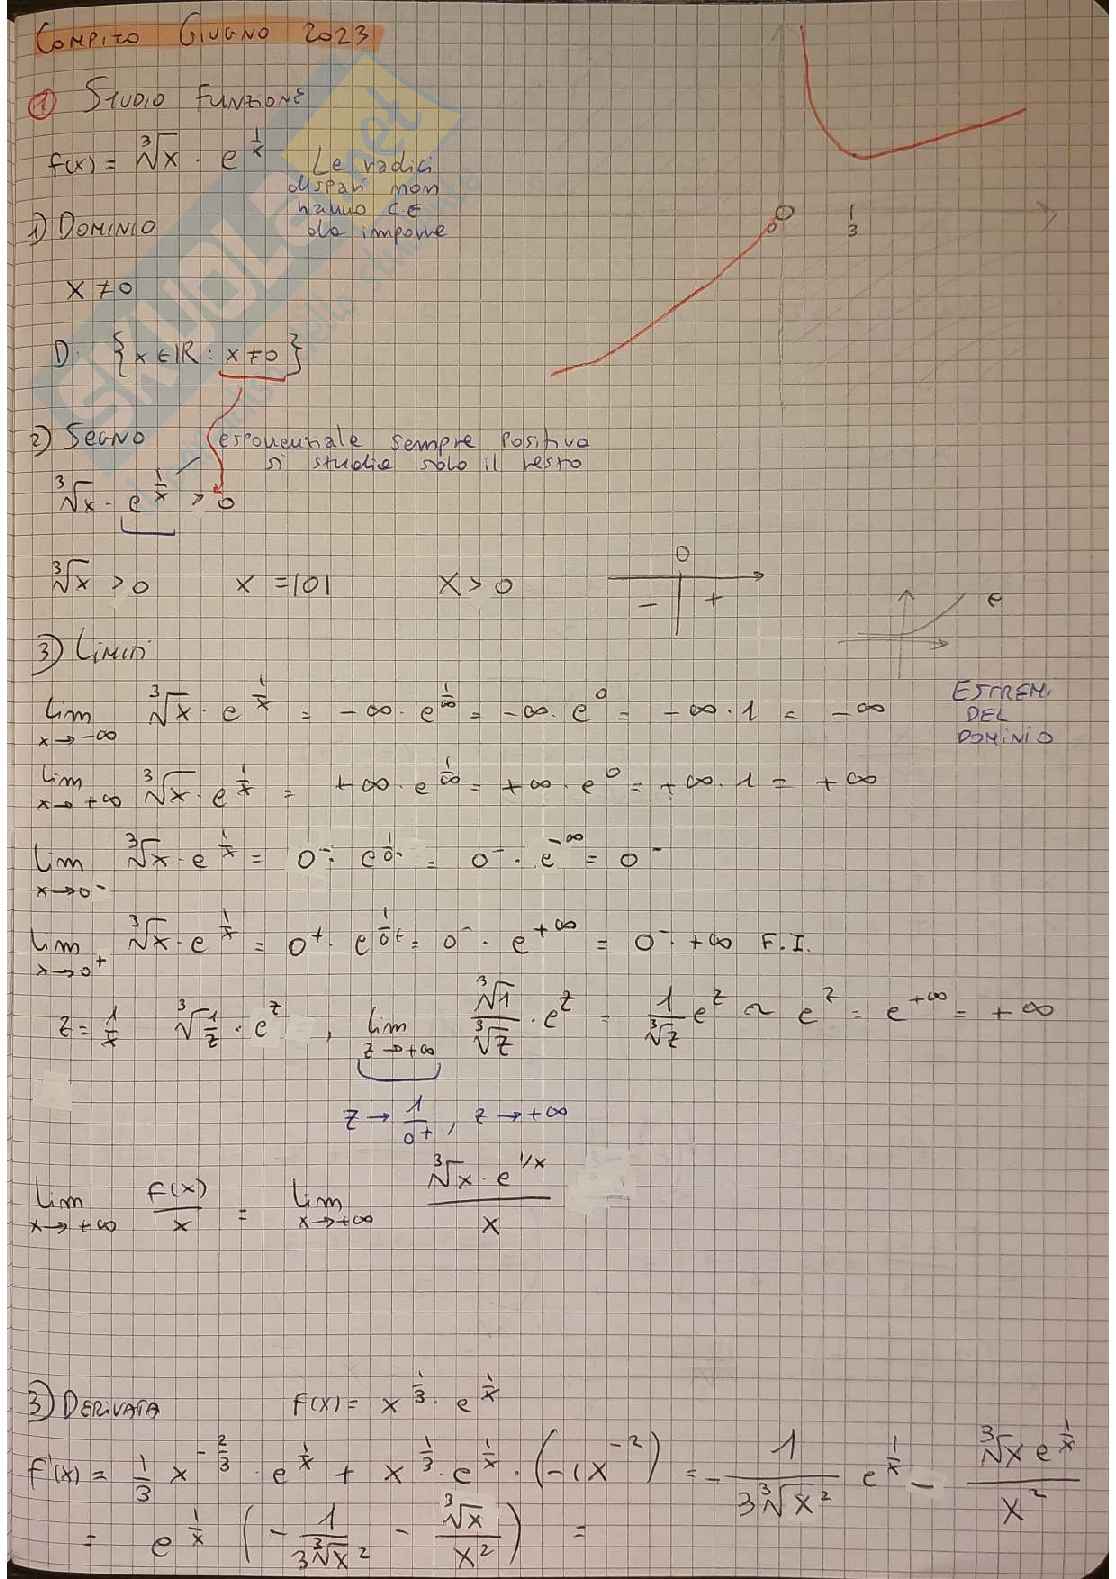 COMPITO GIUGNO 2023
① STUDIO FUNZIONE
f(x) = ∛x · e^(1/x)
Le radici
dispari non
hanno C.E
da imporre
1) DOMINIO
x ≠ 0
D: {x ∈ ℝ : x ≠ 0}
O
1/3
2) SEGNO (esponenziale sempre positivo
si studia solo il resto
∛x · e^(1/x) > 0
∛x > 0   x = |0|   x > 0
0
- +
e
3) LIMITI
lim x→-∞ ∛x · e^(1/x) = -∞ · e^(1/∞) = -∞ · e^0 = -∞ · 1 = -∞
ESTREMI
DEL
DOMINIO
lim x→+∞ ∛x · e^(1/x) = +∞ · e^(1/∞) = +∞ · e^0 = +∞ · 1 = +∞
lim x→0⁻ ∛x · e^(1/x) = 0⁻ · e^(1/0⁻) = 0⁻ · e^(-∞) = 0⁻
lim x→0⁺ ∛x · e^(1/x) = 0⁺ · e^(1/0⁺) = 0⁻ · e^(+∞) = 0⁻ · +∞ F.I.
z = 1/x   ∛(1/z) · e^z , lim z→+∞ ∛1/∛z · e^z = 1/∛z e^z ~ e^z = e^(+∞) = +∞
z → 1/0⁺ , z → +∞
lim x→+∞ f(x)/x = lim x→+∞ (∛x · e^(1/x))/x
3) DERIVATA   f(x) = x^(1/3) · e^(1/x)
f'(x) = 1/3 x^(-2/3) · e^(1/x) + x^(1/3) · e^(1/x) · (-1x^(-2)) = - 1/(3∛x²) e^(1/x) - (∛x e^(1/x))/x²
= e^(1/x) (- 1/(3∛x²) - ∛x/x²) =